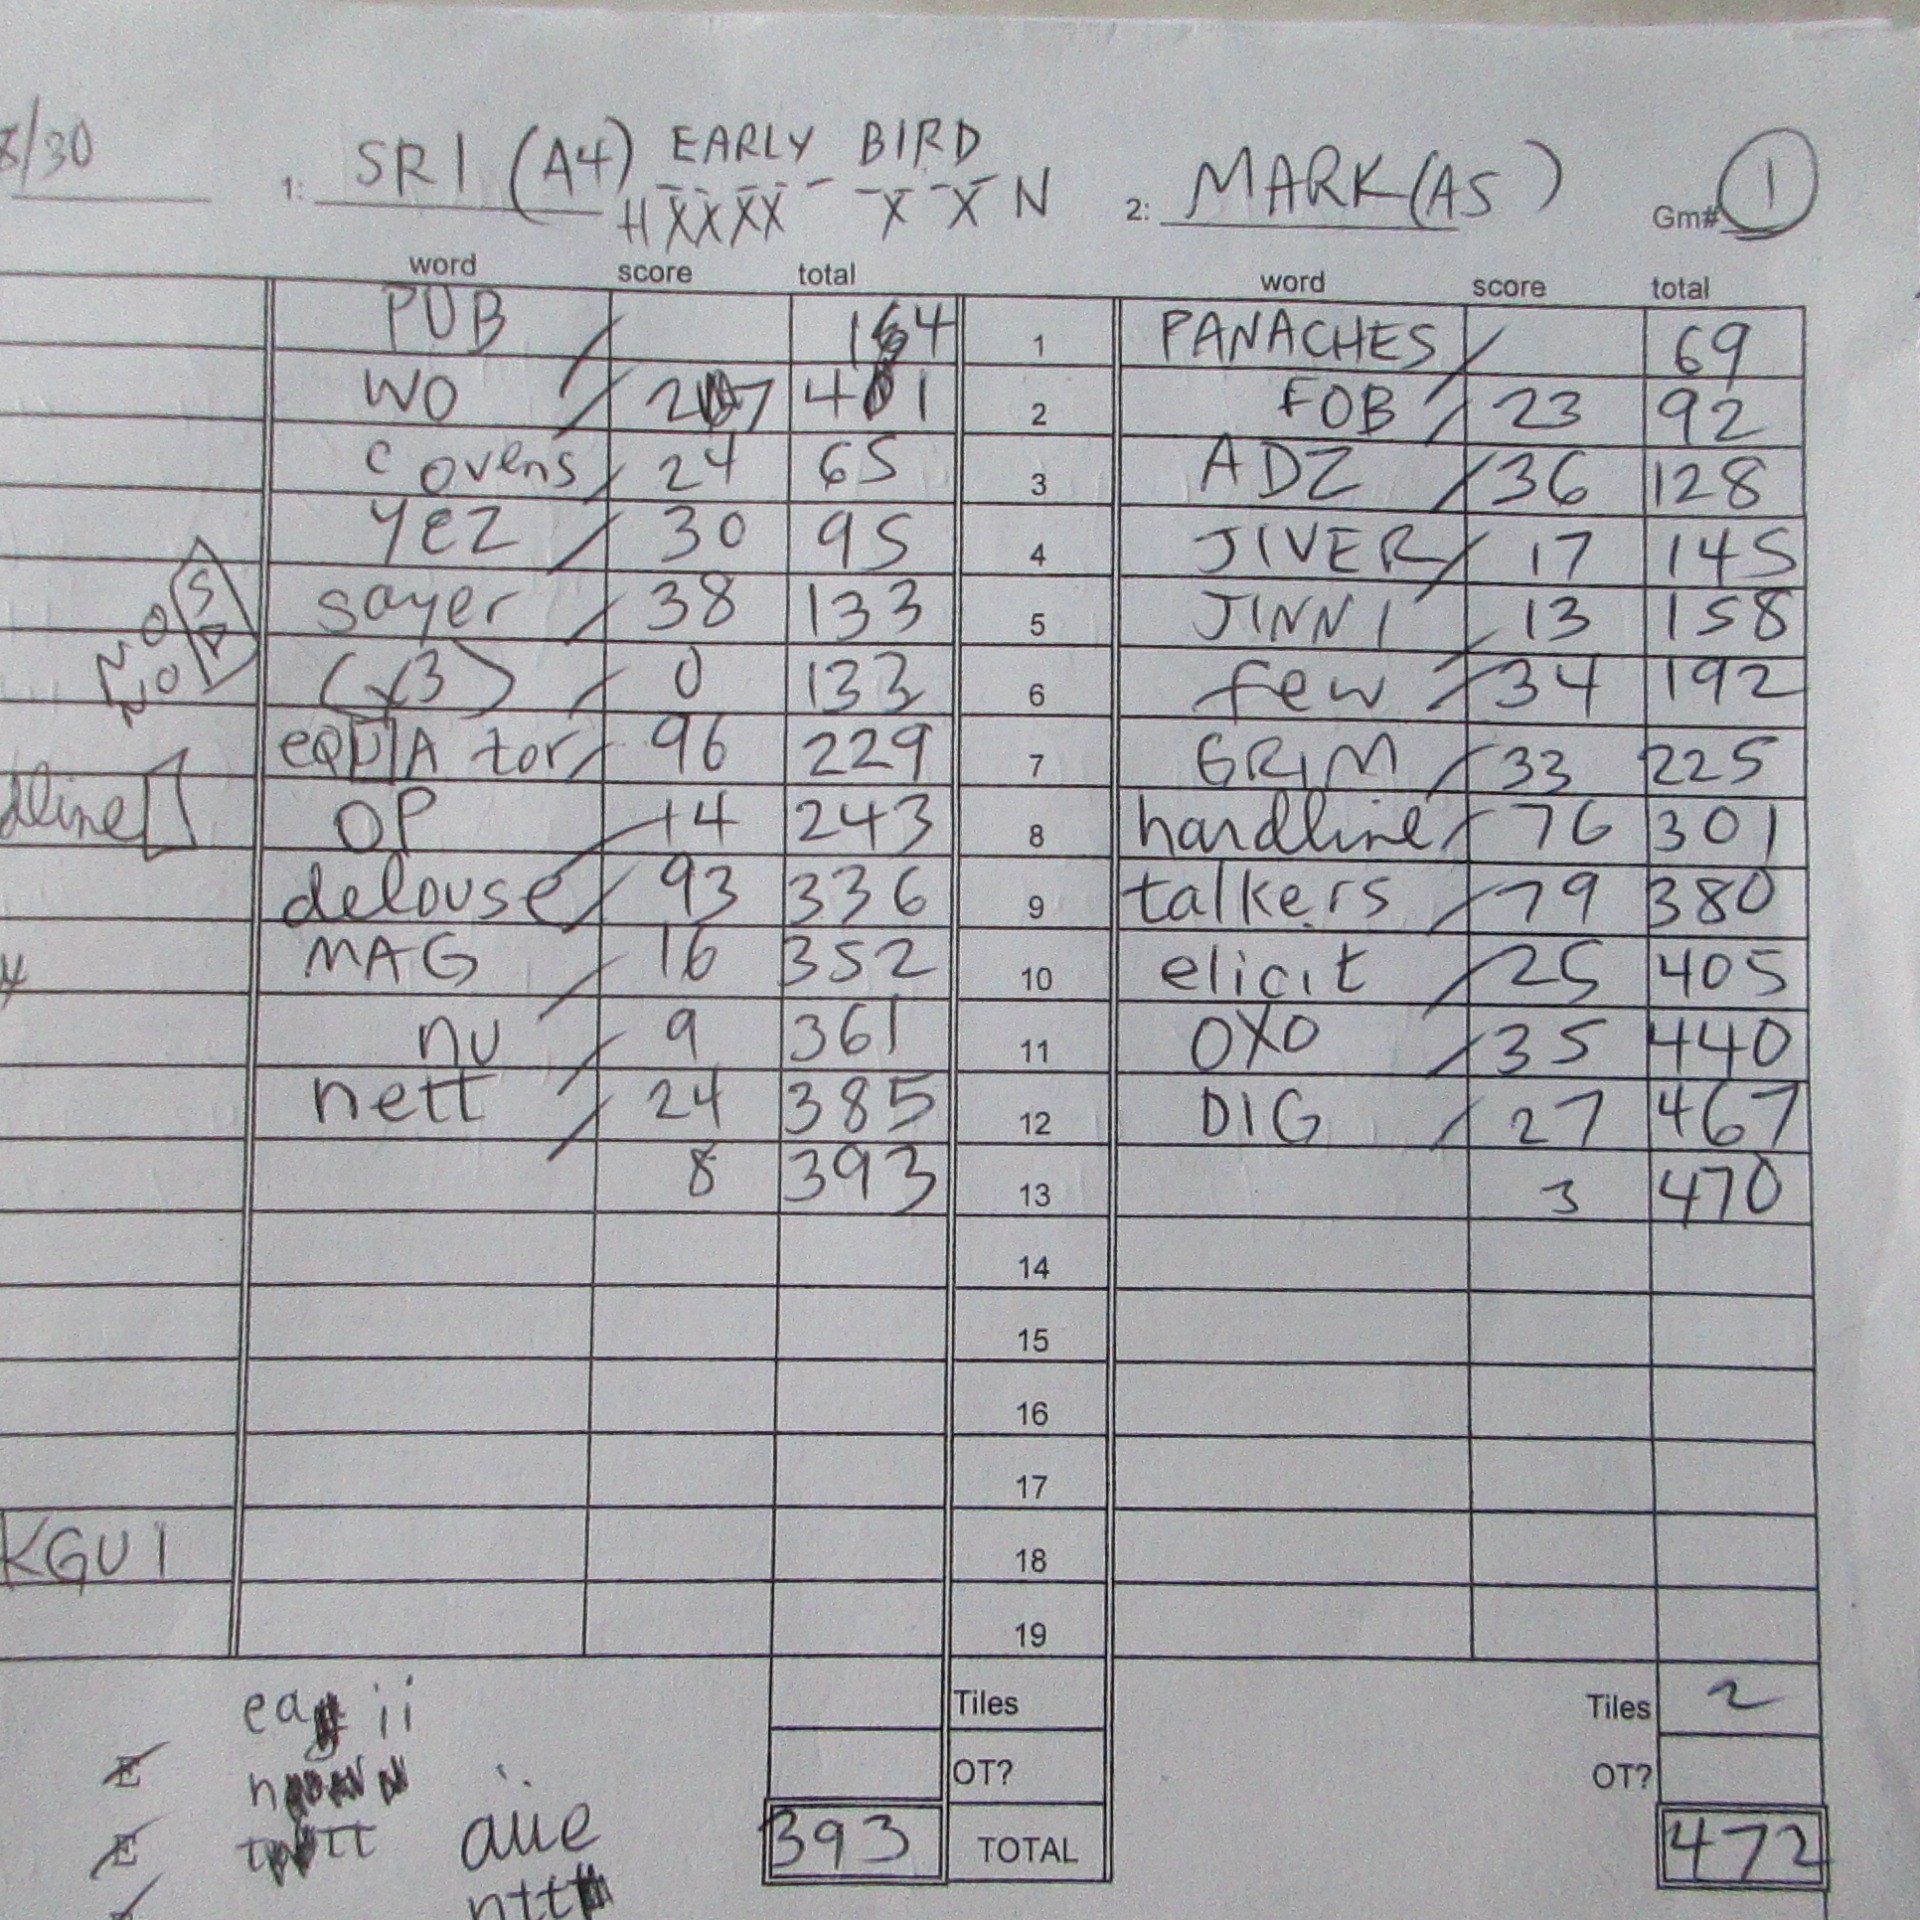 8/30
EARLY BIRD
1: SRI (A4) HXXXX X X N 2: MARK (A5) Gm# 1
word score total word score total
PUB 14 1 PANACHES 69
WO 27 41 2 FOB 23 92
covens 24 65 3 ADZ 36 128
YEZ 30 95 4 JIVER 17 145
sayer 38 133 5 JINNI 13 158
(x3) 0 133 6 few 34 192
eQUAtor 96 229 7 GRIM 33 225
dline OP 14 243 8 hardline 76 301
delouse 93 336 9 talkers 79 380
MAG 16 352 10 elicit 25 405
nu 9 361 11 OXO 35 440
nett 24 385 12 DIG 27 467
8 393 13 3 470
14
15
16
17
KGUI 18
19
Tiles Tiles 2
OT? OT?
393 TOTAL 472
aiie